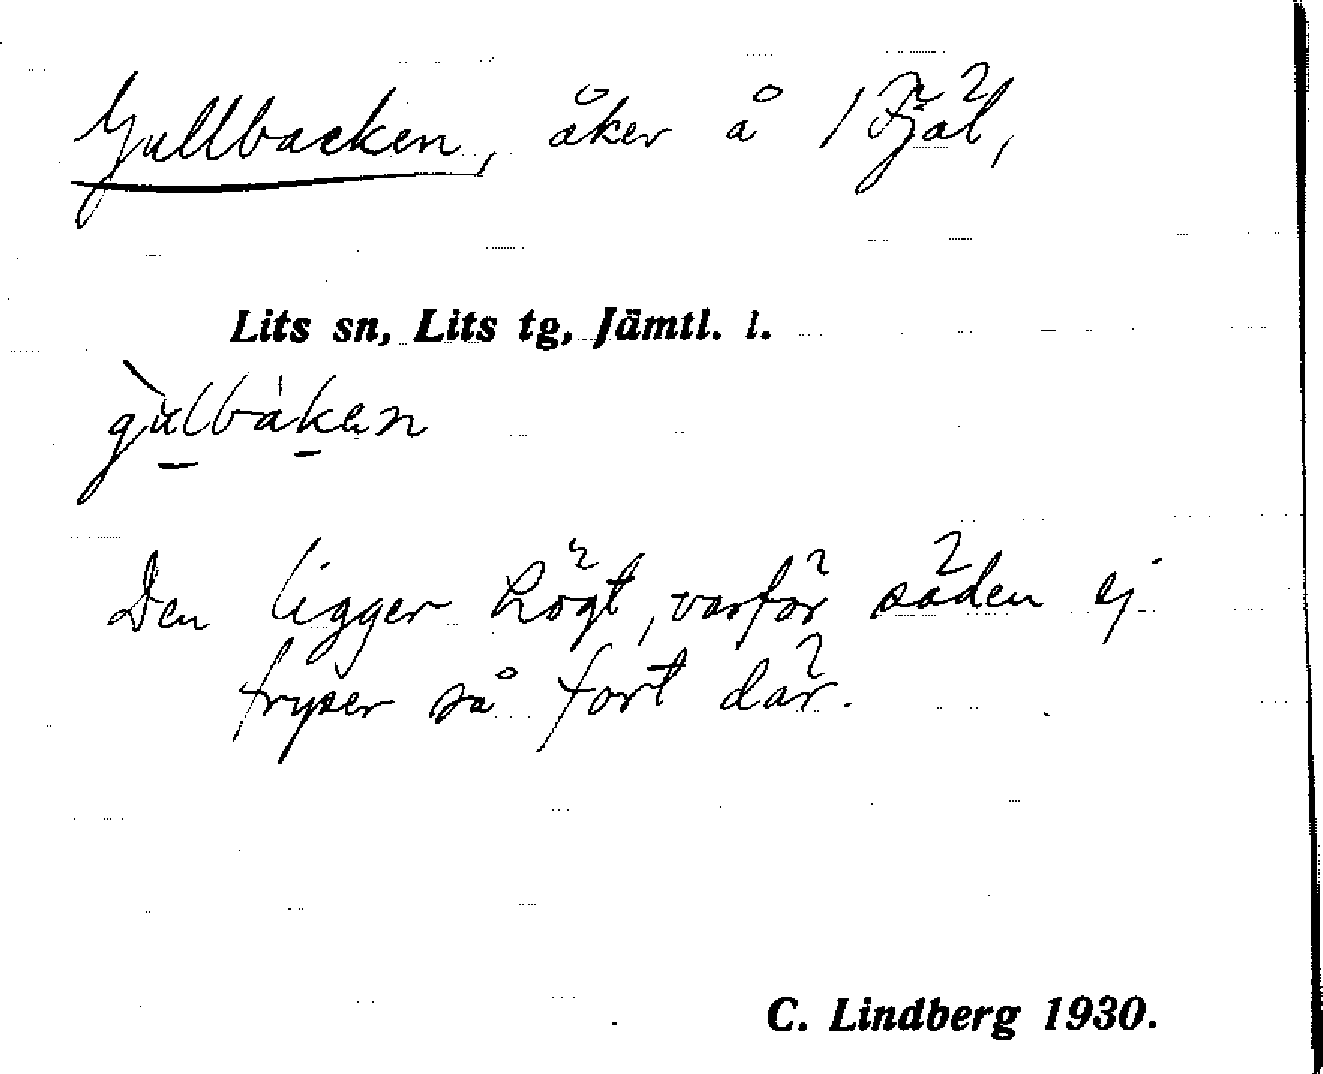 Gullbacken, åker å 1 Fjäl,
Lits sn, Lits tg, Jämtl. l.
gùlbákan
Den ligger högt, varför säden ej
fryser så fort där.
C. Lindberg 1930.